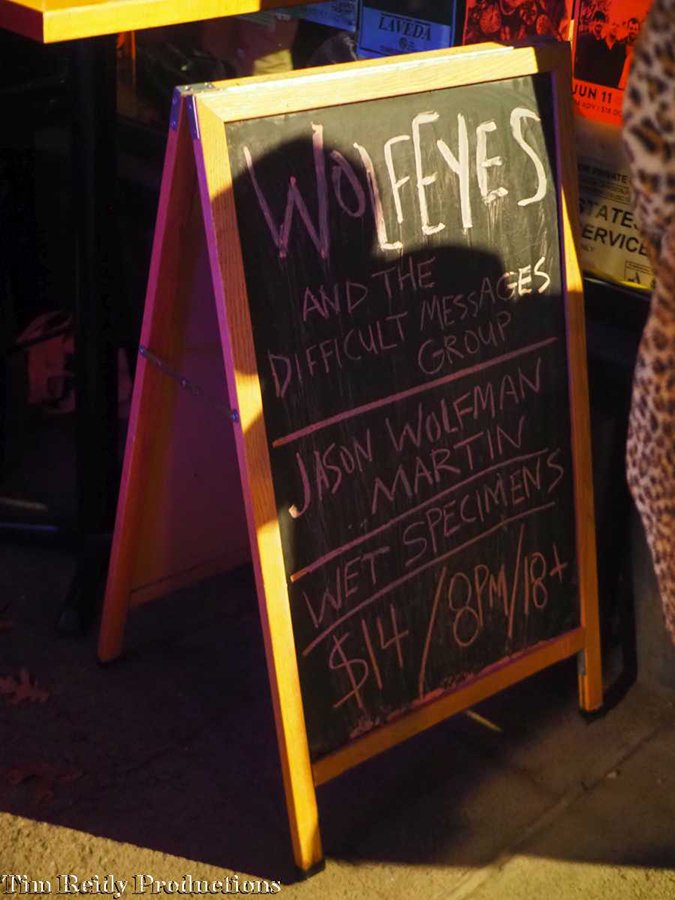 LAVEDA
JUN 11
STATES
SERVICE
WOLFEYES
AND THE
DIFFICULT MESSAGES
GROUP
JASON WOLFMAN
MARTIN
WET SPECIMENS
$14/8PM/18+
Tim Reidy Productions